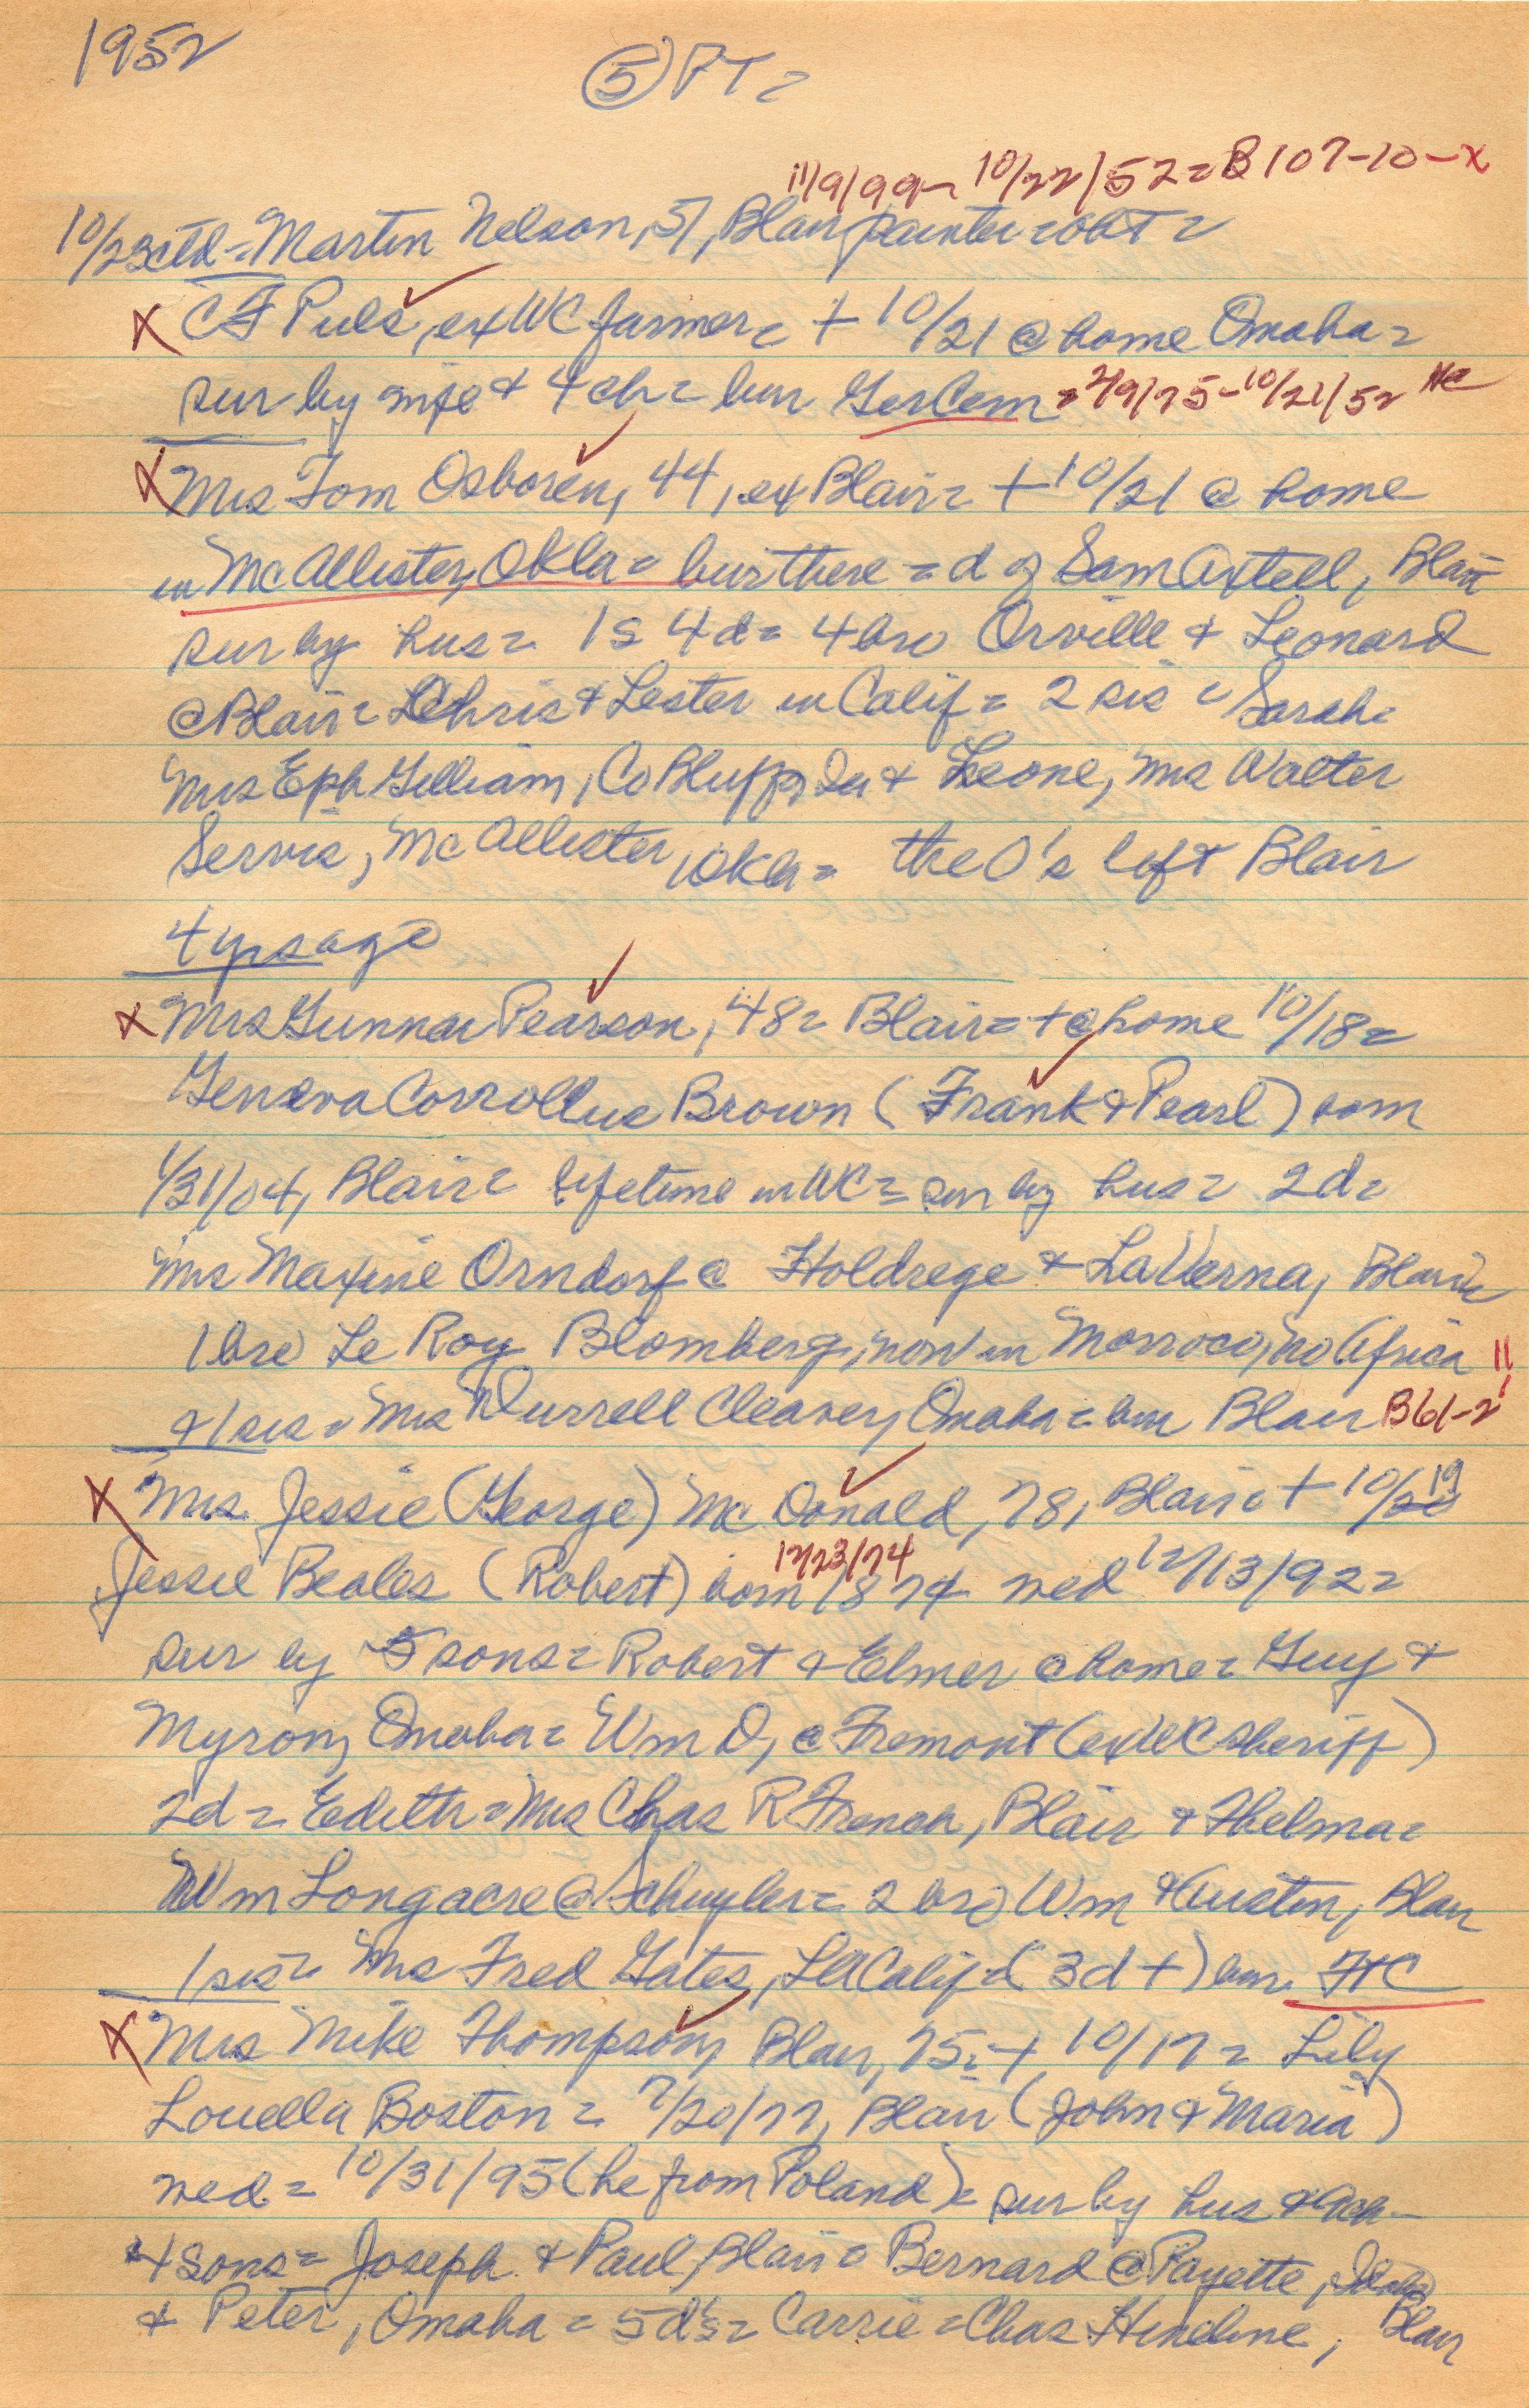 1952
(5) PT =
11/9/99 - 10/22/52 = B 107-10 - x
10/23 ctd = Martin Nelson, 51, Blair painter = obt =
X C F Puls, ex WC farmer = + 10/21 @ home Omaha =
sur by wife & 4 ch = bur Ger Cem = 2/9/75 - 10/21/52
X Mrs Tom Osboren, 44, ex Blair = + 10/21 @ home
in McAllister, Okla = bur there = d of Sam Axtell, Blair
sur by hus = 1 s 4 d = 4 bro Orville & Leonard
@ Blair = Chris & Lester in Calif = 2 sis = Sarah =
Mrs Eph Gilliam, Co Bluffs, Ia & Leone, Mrs Walter
Servis, McAllister, Okla = the O's left Blair
4 yrs ago
X Mrs Gunnar Pearson, 48 = Blair = + @ home 10/18 =
Geneva Corrollus Brown (Frank & Pearl) born
1/31/04, Blair = lifetime in WC = sur by hus = 2 d =
Mrs Maxine Orndorf @ Holdrege & LaVerna, Blair
1 bro Le Roy Blomberg, now in Morroco, No Africa !!
& 1 sis = Mrs Durrell Cleaver, Omaha = bur Blair B61-2
X Mrs Jessie (George) McDonald, 78, Blair = + 10/20 19
12/23/74
Jessie Beales (Robert) born 1874 wed 12/13/92 =
sur by 5 sons = Robert & Elmer @ home = Guy &
Myron, Omaha = Wm D, @ Fremont (ex WC sheriff)
2 d = Edith = Mrs Chas R French, Blair & Thelma =
Wm Longacre @ Schuyler = 2 bro Wm & Austin, Blair
1 sis = Mrs Fred Gates, LA Calif = (3 d +) bur FTC
X Mrs Mike Thompson, Blair, 75 = + 10/17 = Lily
Louella Boston = 7/20/77, Blair (John & Maria)
wed = 10/31/95 (he from Poland) = sur by hus & 9 ch -
4 sons = Joseph & Paul, Blair = Bernard @ Payette, Idaho
& Peter, Omaha = 5 d's = Carrie = Chas Hineline, Blair